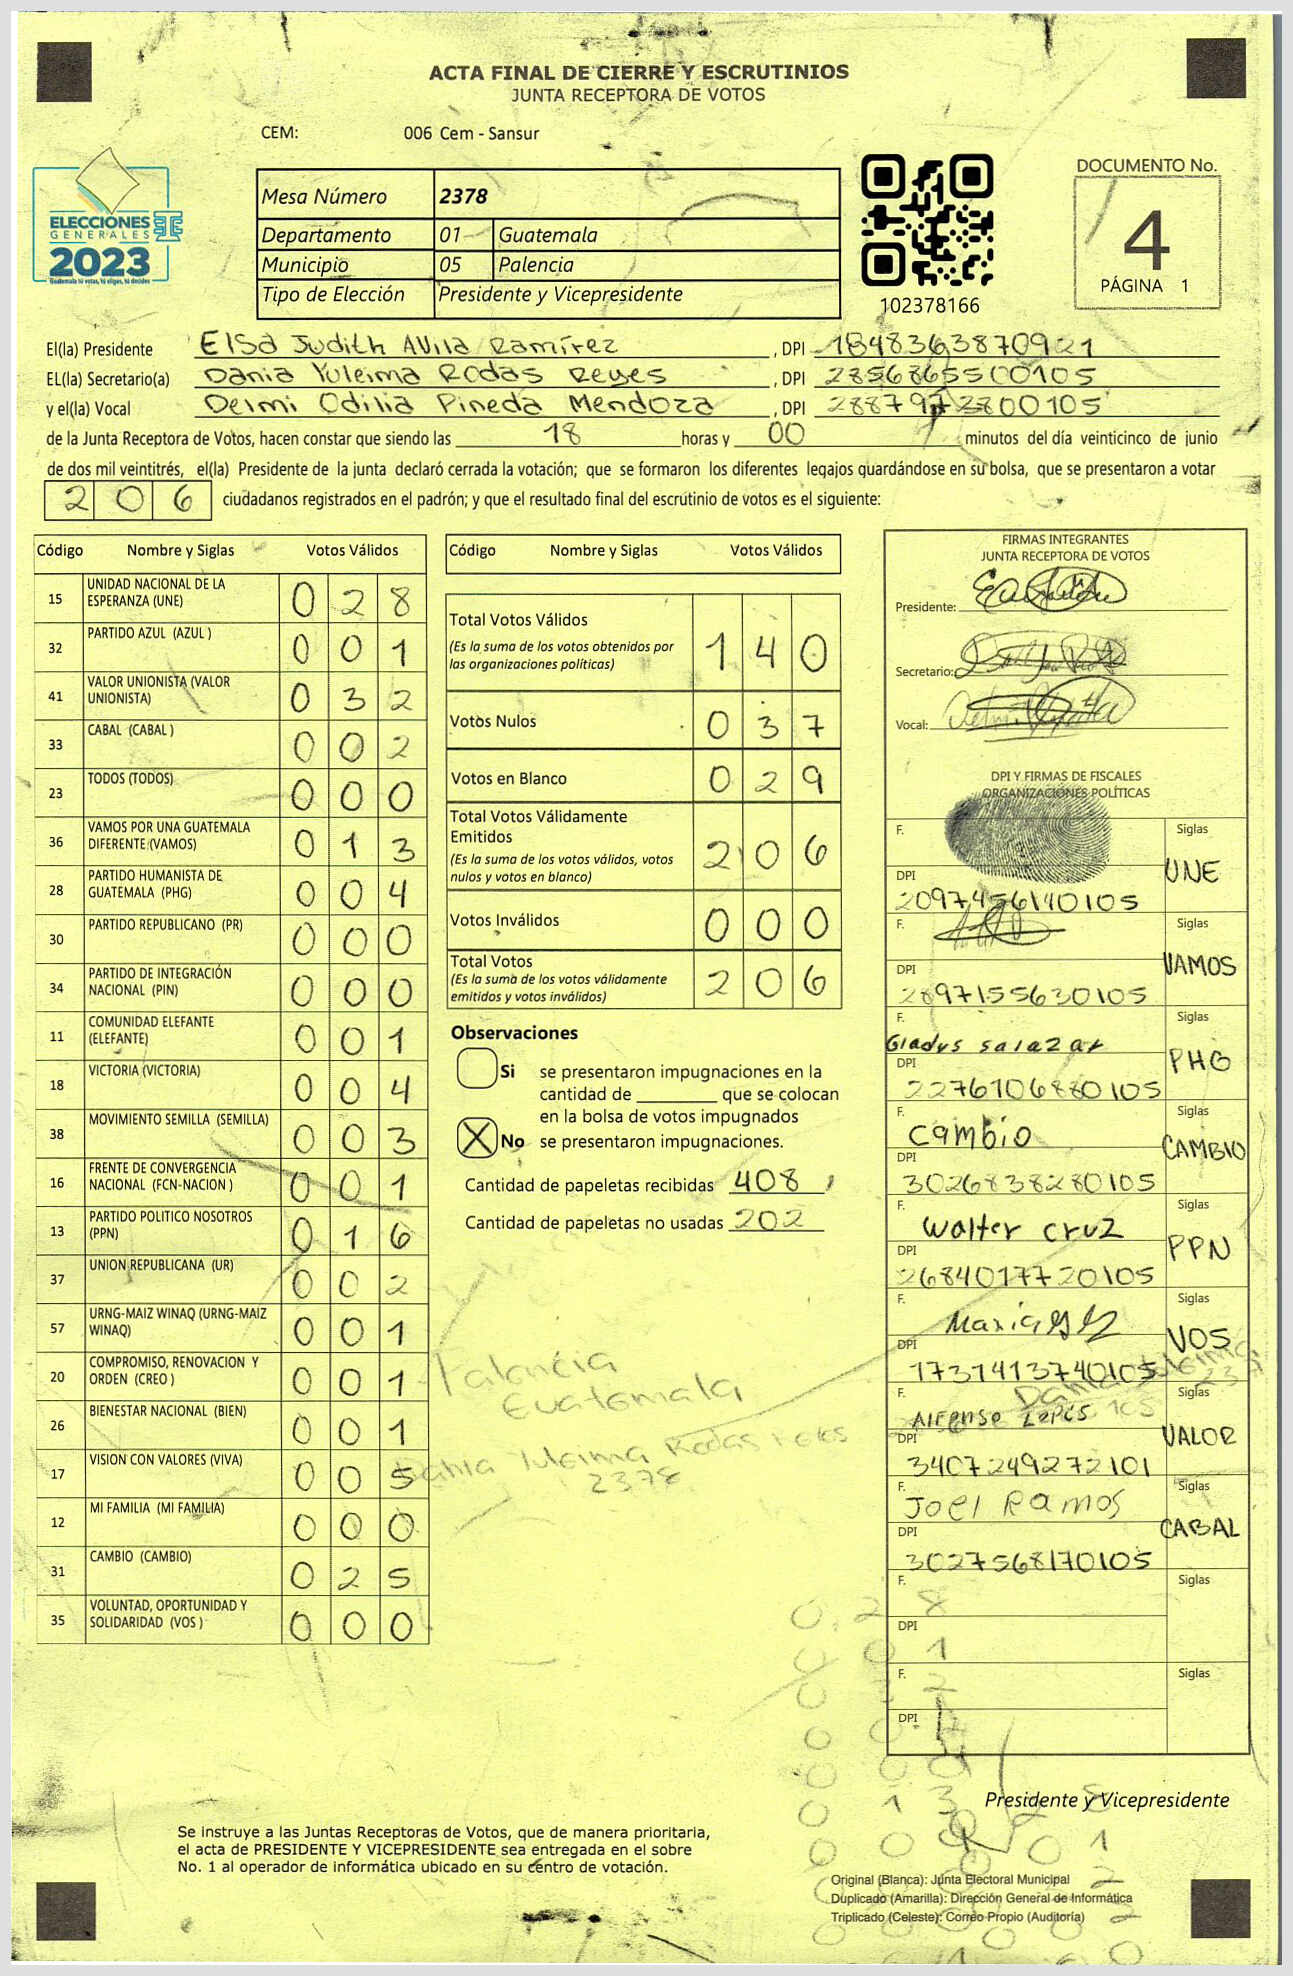 ACTA FINAL DE CIERRE Y ESCRUTINIOS
JUNTA RECEPTORA DE VOTOS
CEM: 006 Cem - Sansur
ELECCIONES
GENERALES
2023
Guatemala tú votas, tú eliges, tú decides
Mesa Número 2378
Departamento 01 Guatemala
Municipio 05 Palencia
Tipo de Elección Presidente y Vicepresidente
102378166
DOCUMENTO No.
4
PÁGINA 1
El(la) Presidente Elsa Judith Avila Ramírez, DPI 1848363870921
EL(la) Secretario(a) Dania Yuleima Rodas Reyes, DPI 2856865500105
y el(la) Vocal Delmi Odilia Pineda Mendoza, DPI 2887972800105
de la Junta Receptora de Votos, hacen constar que siendo las 18 horas y 00 minutos del día veinticinco de junio
de dos mil veintitrés, el(la) Presidente de la junta declaró cerrada la votación; que se formaron los diferentes legajos guardándose en su bolsa, que se presentaron a votar
206 ciudadanos registrados en el padrón; y que el resultado final del escrutinio de votos es el siguiente:
Código Nombre y Siglas Votos Válidos
15 UNIDAD NACIONAL DE LA ESPERANZA (UNE) 0 2 8
32 PARTIDO AZUL (AZUL ) 0 0 1
41 VALOR UNIONISTA (VALOR UNIONISTA) 0 3 2
33 CABAL (CABAL ) 0 0 2
23 TODOS (TODOS) 0 0 0
36 VAMOS POR UNA GUATEMALA DIFERENTE (VAMOS) 0 1 3
28 PARTIDO HUMANISTA DE GUATEMALA (PHG) 0 0 4
30 PARTIDO REPUBLICANO (PR) 0 0 0
34 PARTIDO DE INTEGRACIÓN NACIONAL (PIN) 0 0 0
11 COMUNIDAD ELEFANTE (ELEFANTE) 0 0 1
18 VICTORIA (VICTORIA) 0 0 4
38 MOVIMIENTO SEMILLA (SEMILLA) 0 0 3
16 FRENTE DE CONVERGENCIA NACIONAL (FCN-NACION ) 0 0 1
13 PARTIDO POLITICO NOSOTROS (PPN) 0 1 6
37 UNION REPUBLICANA (UR) 0 0 2
57 URNG-MAIZ WINAQ (URNG-MAIZ WINAQ) 0 0 1
20 COMPROMISO, RENOVACION Y ORDEN (CREO ) 0 0 1
26 BIENESTAR NACIONAL (BIEN) 0 0 1
17 VISION CON VALORES (VIVA) 0 0 5
12 MI FAMILIA (MI FAMILIA) 0 0 0
31 CAMBIO (CAMBIO) 0 2 5
35 VOLUNTAD, OPORTUNIDAD Y SOLIDARIDAD (VOS ) 0 0 0
Código Nombre y Siglas Votos Válidos
Total Votos Válidos 1 4 0
(Es la suma de los votos obtenidos por
las organizaciones políticas)
Votos Nulos 0 3 7
Votos en Blanco 0 2 9
Total Votos Válidamente
Emitidos 2 0 6
(Es la suma de los votos válidos, votos
nulos y votos en blanco)
Votos Inválidos 0 0 0
Total Votos 2 0 6
(Es la suma de los votos válidamente
emitidos y votos inválidos)
Observaciones
Si se presentaron impugnaciones en la
cantidad de ________ que se colocan
en la bolsa de votos impugnados
X No se presentaron impugnaciones.
Cantidad de papeletas recibidas 408
Cantidad de papeletas no usadas 202
Palencia
Guatemala
Dania Yuleima Rodas
2378
FIRMAS INTEGRANTES
JUNTA RECEPTORA DE VOTOS
Presidente:
Secretario:
Vocal:
DPI Y FIRMAS DE FISCALES
ORGANIZACIONES POLÍTICAS
F. Siglas
DPI UNE
2097456140105
F. Siglas
DPI VAMOS
2897155630105
F. Siglas
Gladys Salazar
DPI PHG
2276106880105
F. Siglas
Cambio
DPI CAMBIO
3026838280105
F. Siglas
Walter Cruz
DPI PPN
2684017720105
F. Siglas
DPI VOS
1731413740105
F. Siglas
Alfonso
DPI VALOR
3407249272101
F. Siglas
Joel Ramos
DPI CABAL
3027568170105
F. Siglas
DPI
F. Siglas
DPI
Presidente y Vicepresidente
Se instruye a las Juntas Receptoras de Votos, que de manera prioritaria,
el acta de PRESIDENTE Y VICEPRESIDENTE sea entregada en el sobre
No. 1 al operador de informática ubicado en su centro de votación.
Original (Blanca): Junta Electoral Municipal
Duplicado (Amarilla): Dirección General de Informática
Triplicado (Celeste): Correo Propio (Auditoría)